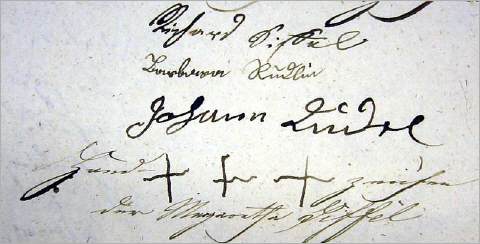 Richard Siffel
Barbara Rudlin
Johann Rudel
Hand + + + zeichen
der Margaretha Siffel